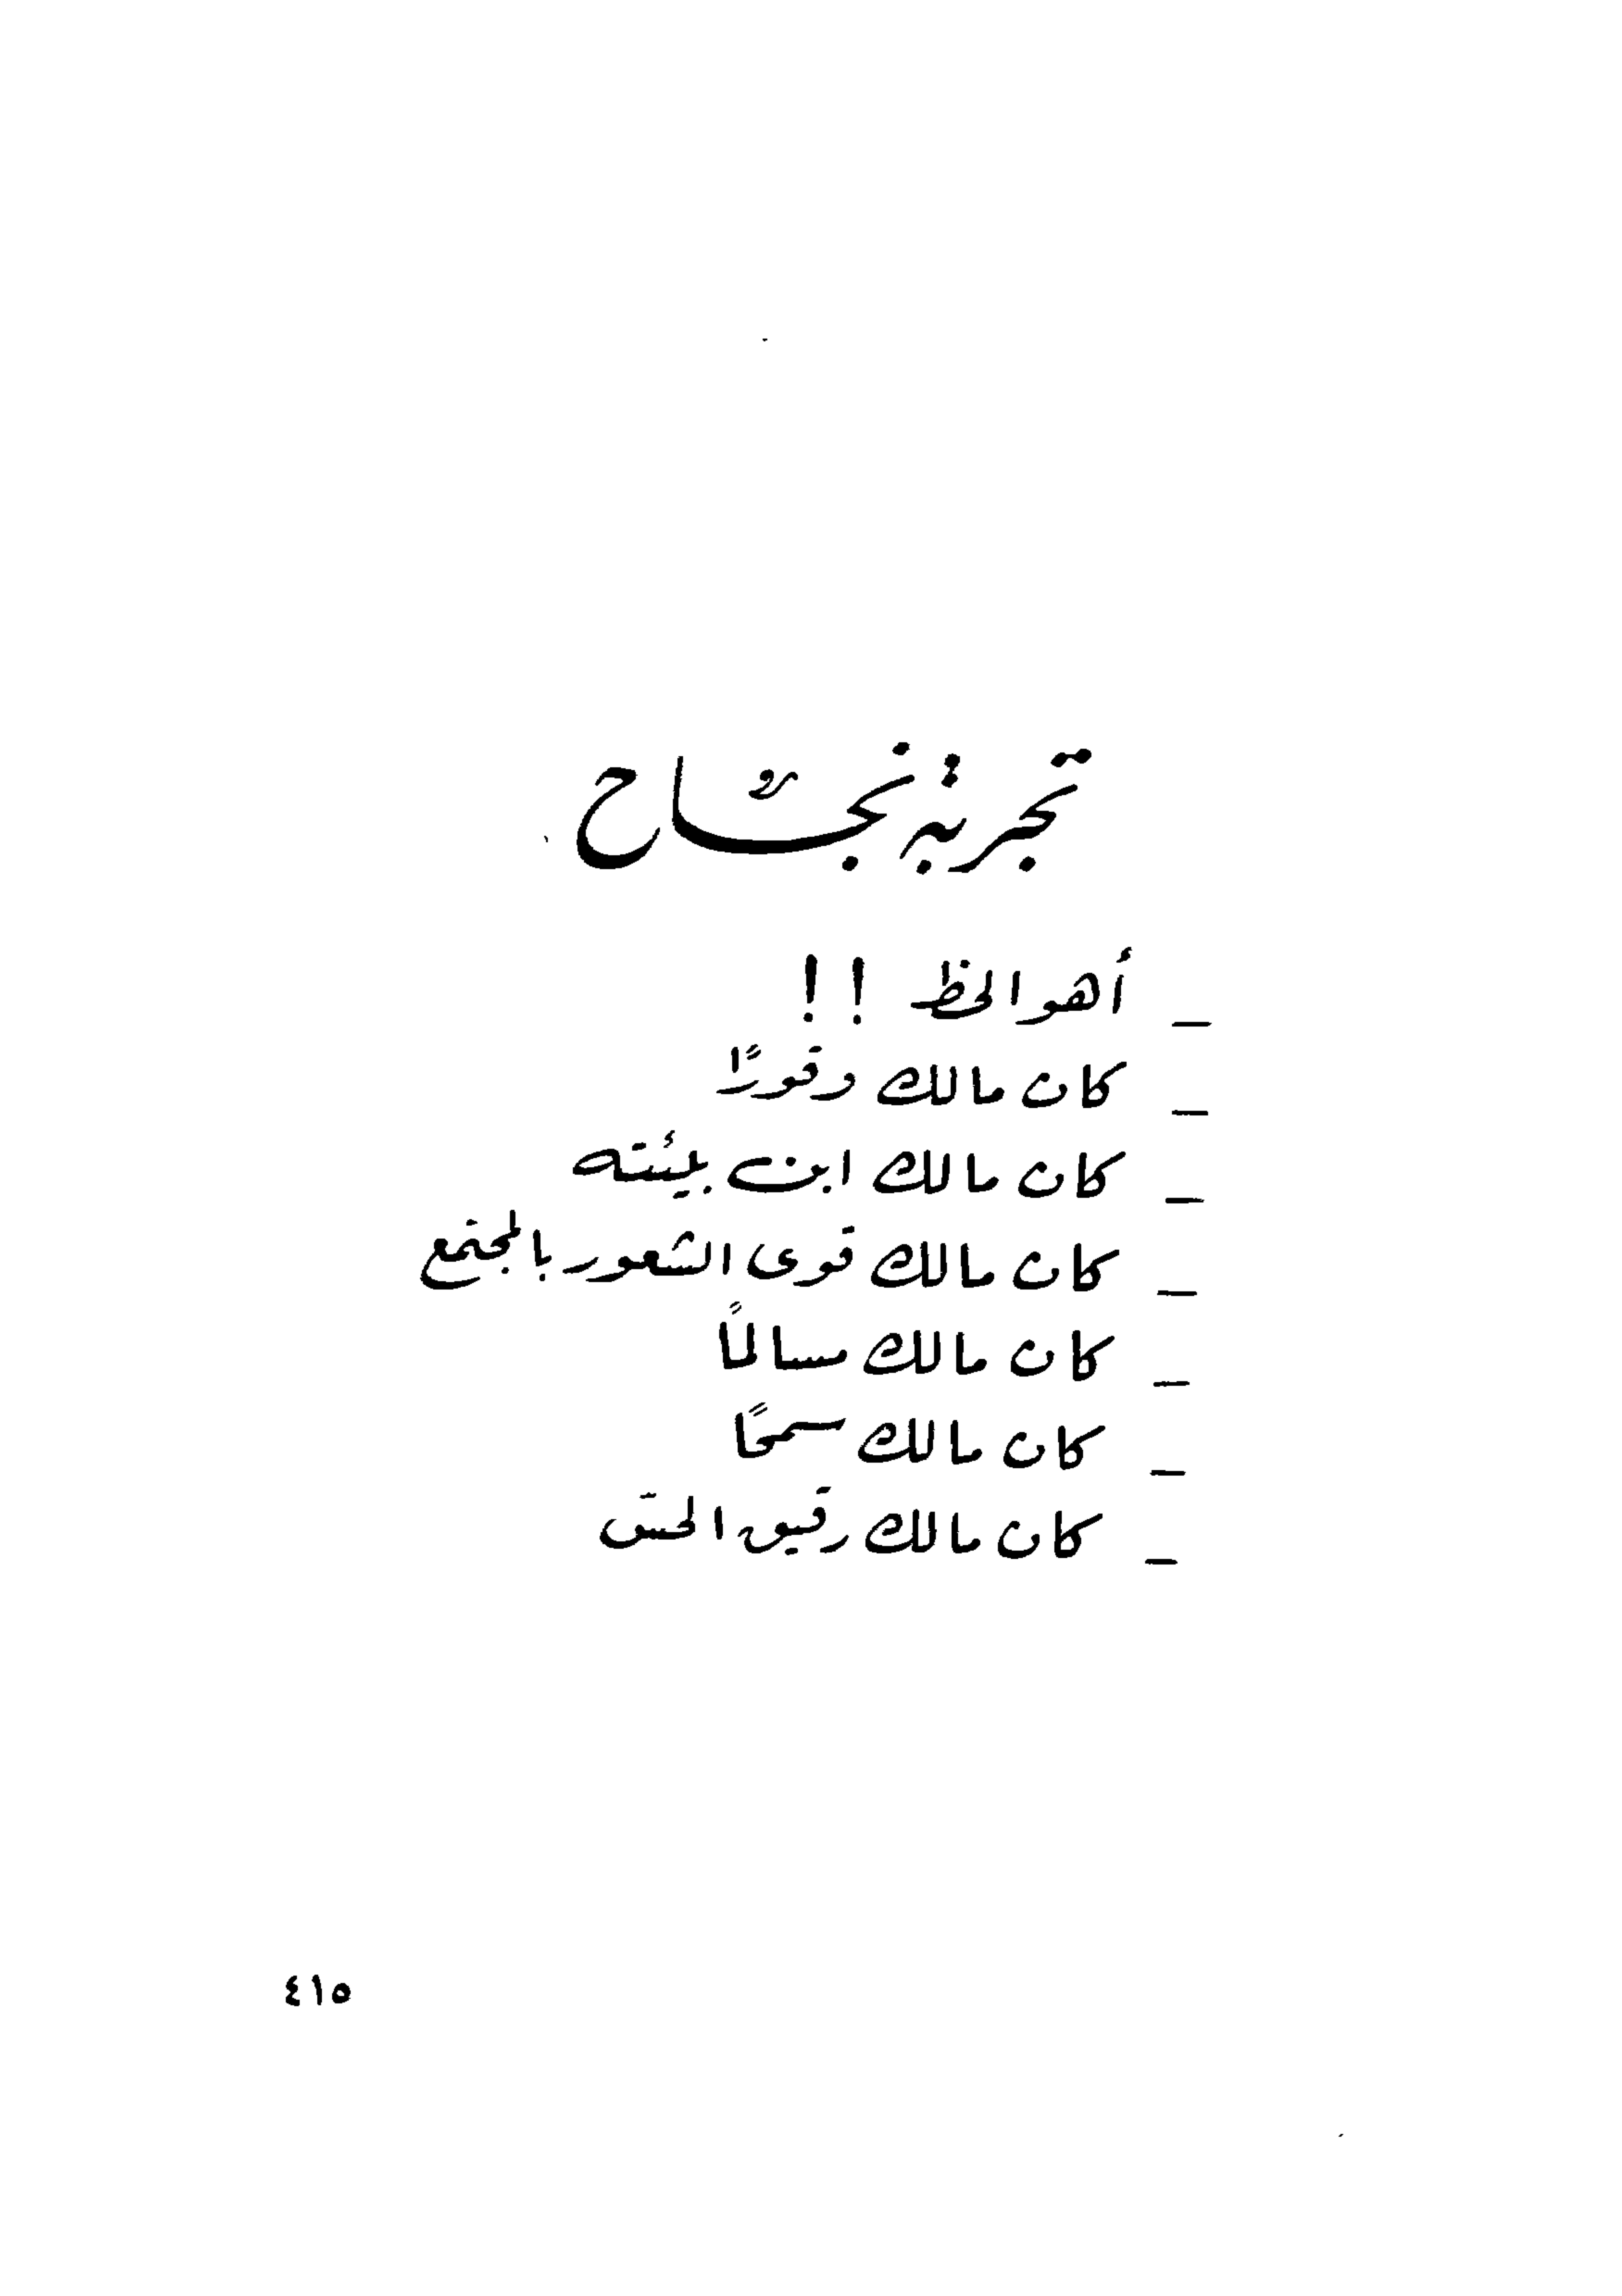 تجربة نجاح
_ أهو الحظ !!
_ كان مالك وقورًا
_ كان مالك ابن بيئته
_ كان مالك قوى الشعور بالمجتمع
_ كان مالك مسالمًا
_ كان مالك سمحًا
_ كان مالك رقيق الحسّ
٤١٥